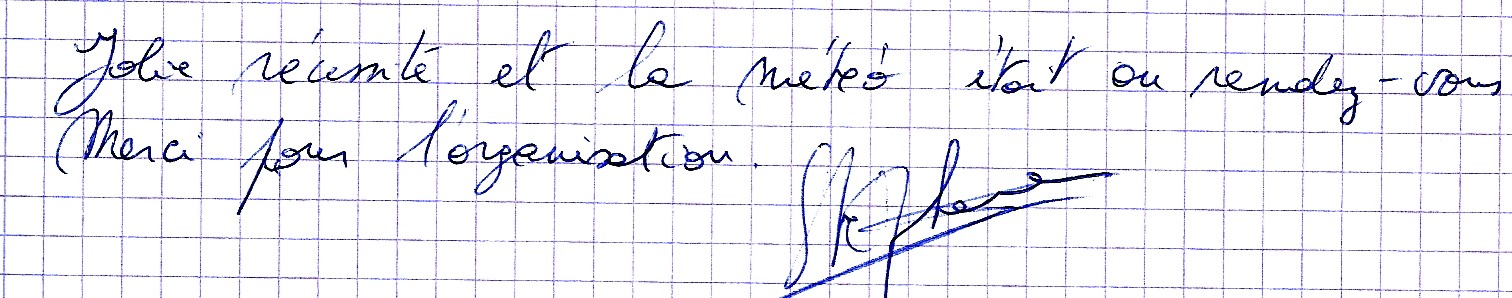 Jolie récemté et la météo était au rendez-vous
Merci pour l'organisation.
Stéphane